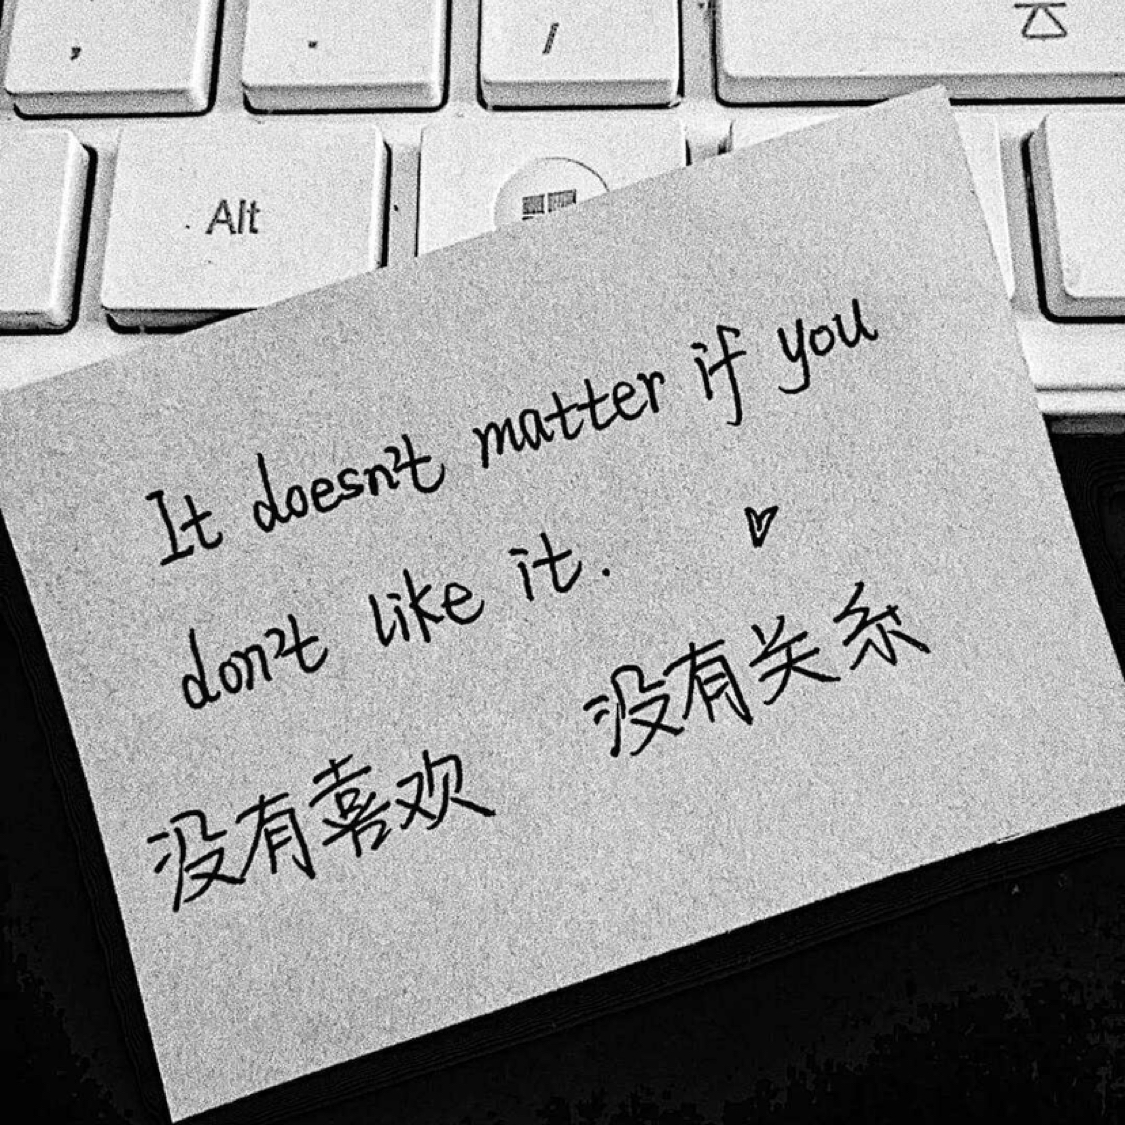 , . /
Alt
It doesn't matter if you
don't like it.
没有喜欢 没有关系